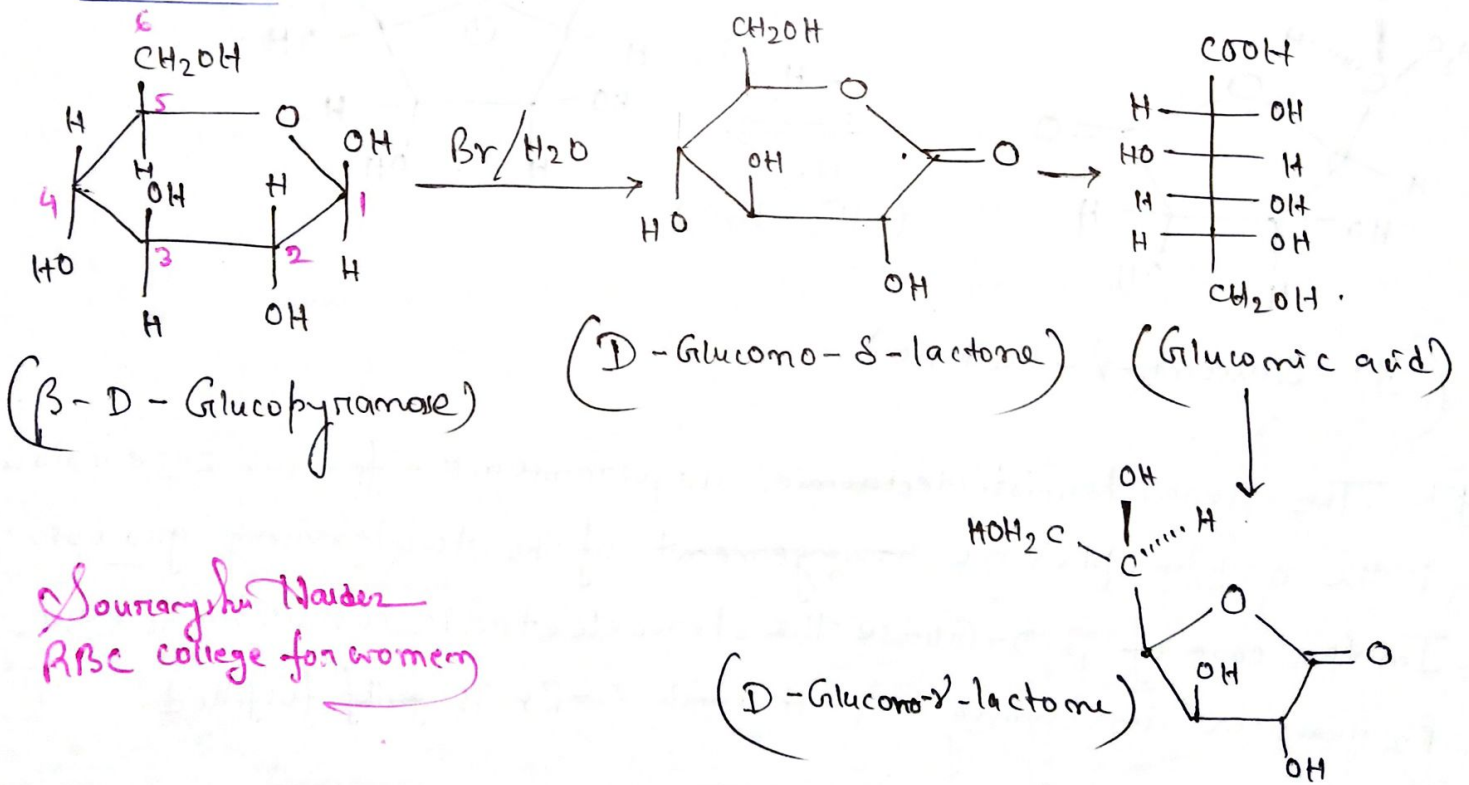 6
CH2OH
5
H
O
OH
H
OH
H
4
1
HO
3
2
H
H
OH
(β-D-Glucopyranose)
Br/H2O
CH2OH
O
OH
O
HO
OH
(D-Glucono-δ-lactone)
COOH
H OH
HO H
H OH
H OH
CH2OH.
(Gluconic acid)
OH
HOH2C
H
C
O
OH
O
OH
(D-Glucono-γ-lactone)
RBC college for women